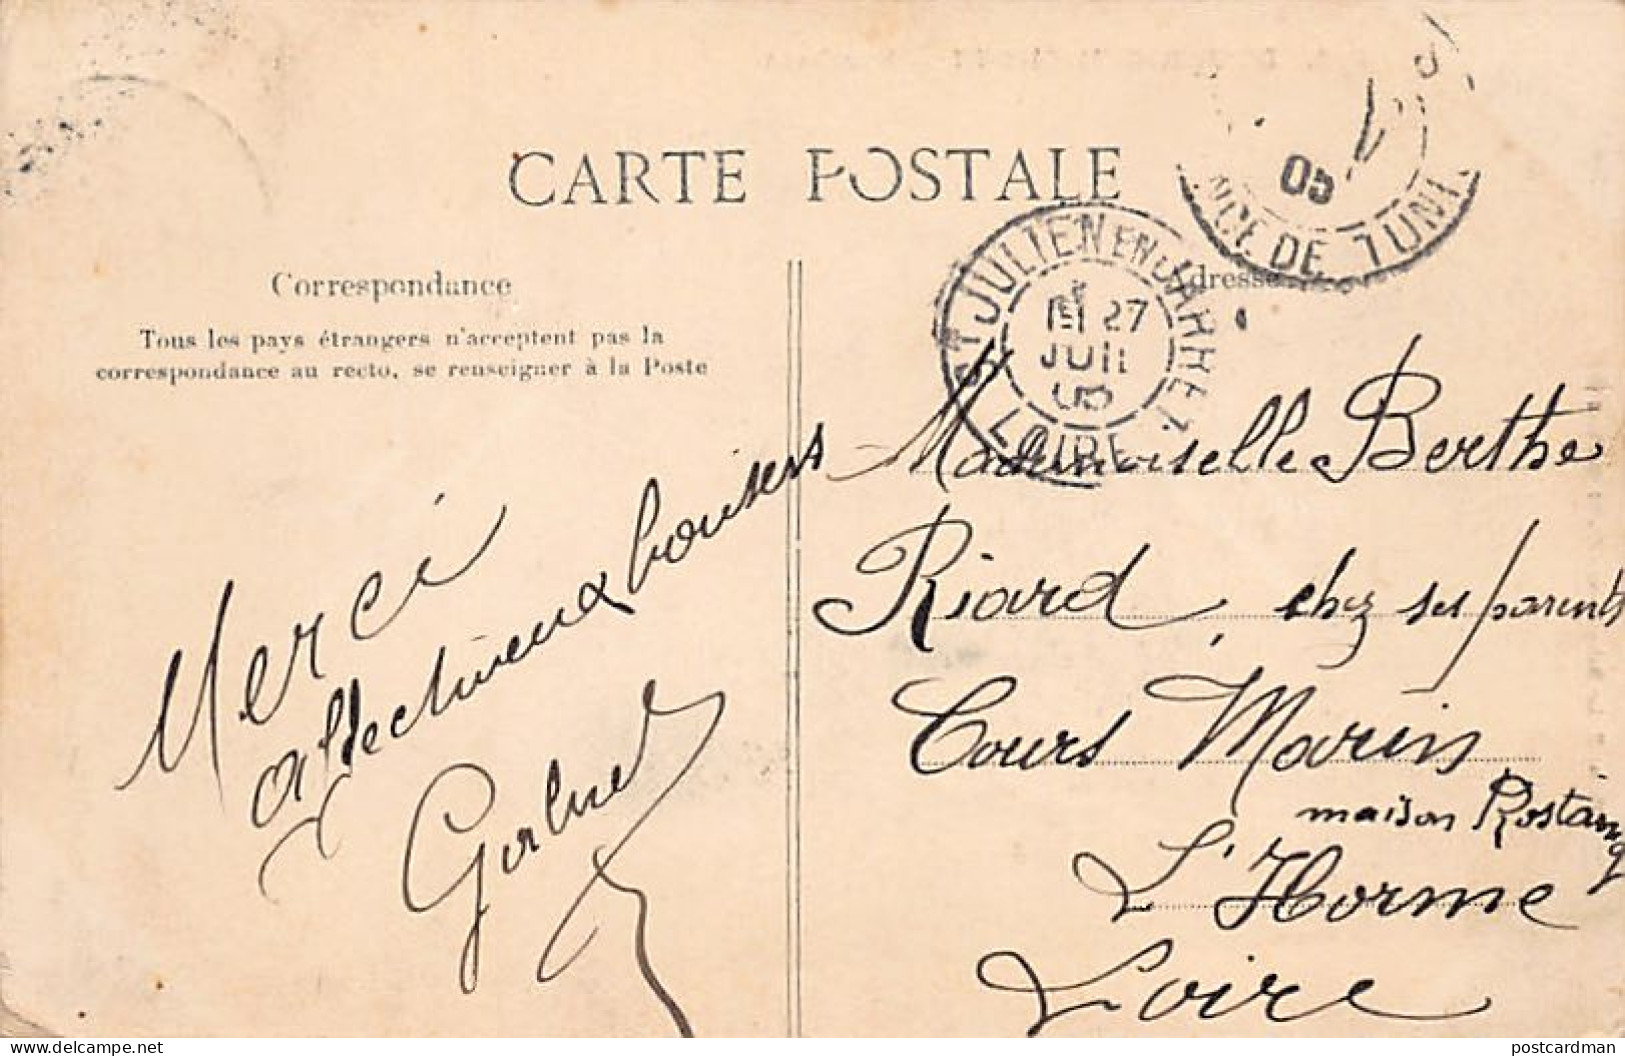 CARTE POSTALE
Correspondance
Tous les pays étrangers n'acceptent pas la
correspondance au recto, se renseigner à la Poste
Merci
affectueux baisers
Adresse
05
NCE DE TUNI
ST JULIEN EN JARRET
27
JUIL
05
LOIRE
Mademoiselle Berthe
Riard, chez ses parents
Cours Marin
maison Rostaing
L'Horme
Loire
postcardman